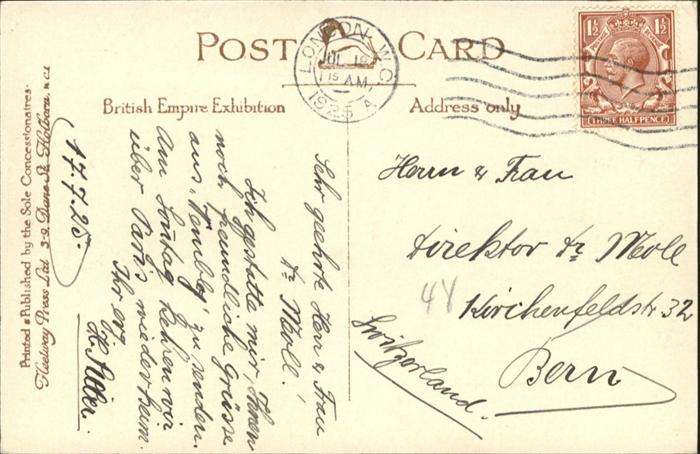 POST CARD
British Empire Exhibition
Address only
Printed & Published by the Sole Concessionaires:
Fleetway Press Ltd 3-9, Dane St. Holborn. W.C.1
LONDON. W.C.
JUL 18
15 AM
1925 A
1½ 1½
THREE HALFPENCE
17.7.25.
Sehr geehrte Herr & Frau
Dr Moll!
Ich gestatte mir, Ihnen
noch freundliche Grüsse
aus „Wembley“ zu senden.
Am Sonntag kehren wir
über Paris wieder heim.
Ihr erg.
H.
Herrn & Frau
Direktor Dr Moll
Kirchenfeldstr 32
Bern
Switzerland.
44